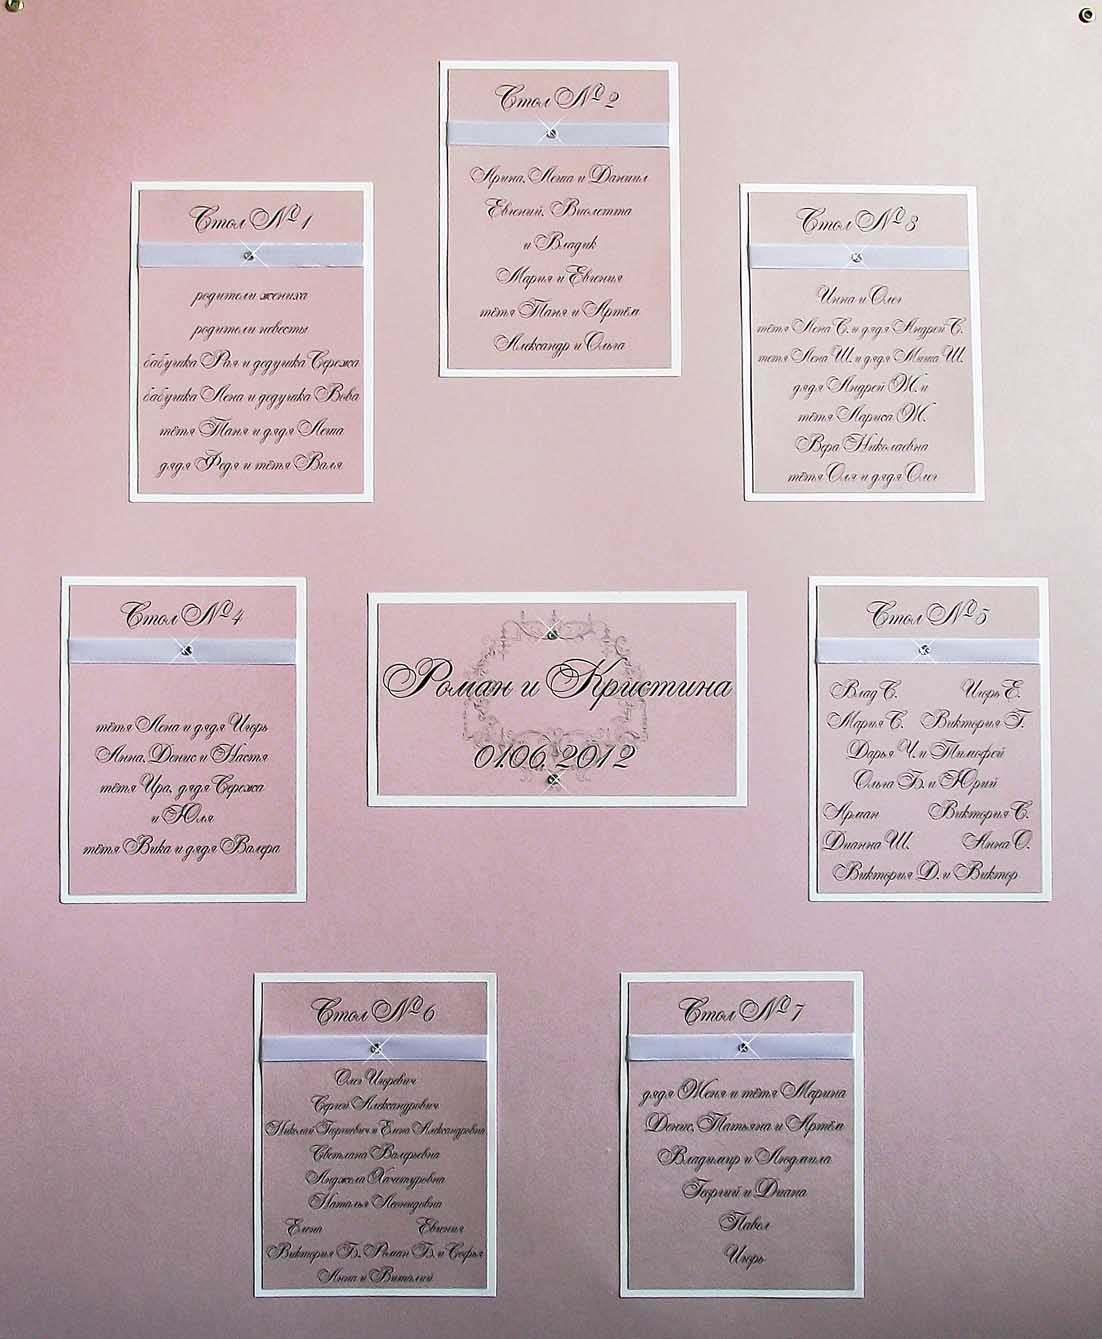 Стол № 1
родители жениха
родители невесты
бабушка Рая и дедушка Сережа
бабушка Лена и дедушка Вова
тётя Таня и дядя Леша
дядя Федя и тётя Валя
Стол № 2
Арина, Леша и Даниил
Евгений, Виолетта
и Владик
Мария и Евгения
тётя Таня и Артём
Александр и Ольга
Стол № 3
Инна и Олег
тётя Лена С. и дядя Андрей С.
тетя Лена Ш. и дядя Миша Ш.
дядя Андрей Ж. и
тётя Лариса Ж.
Вера Николаевна
тётя Оля и дядя Олег
Стол № 4
тётя Лена и дядя Игорь
Анна, Денис и Настя
тётя Ира, дядя Сережа
и Юля
тётя Вика и дядя Валера
Роман и Кристина
01.06.2012
Стол № 5
Влад С. Игорь Е.
Мария С. Виктория Г.
Дарья Ч. и Тимофей
Ольга Б. и Юрий
Арман Виктория С.
Дианна Ш. Анна О.
Виктория Д. и Виктор
Стол № 6
Олег Игоревич
Сергей Александрович
Николай и Елена Александровна
Светлана Валерьевна
Анджела Хачатуровна
Наталья Леонидовна
Елена Евгения
Виктория Б., Роман Б. и Софья
Анна и Виталий
Стол № 7
дядя Женя и тётя Марина
Денис, Татьяна и Артём
Владимир и Людмила
Георгий и Диана
Павел
Игорь